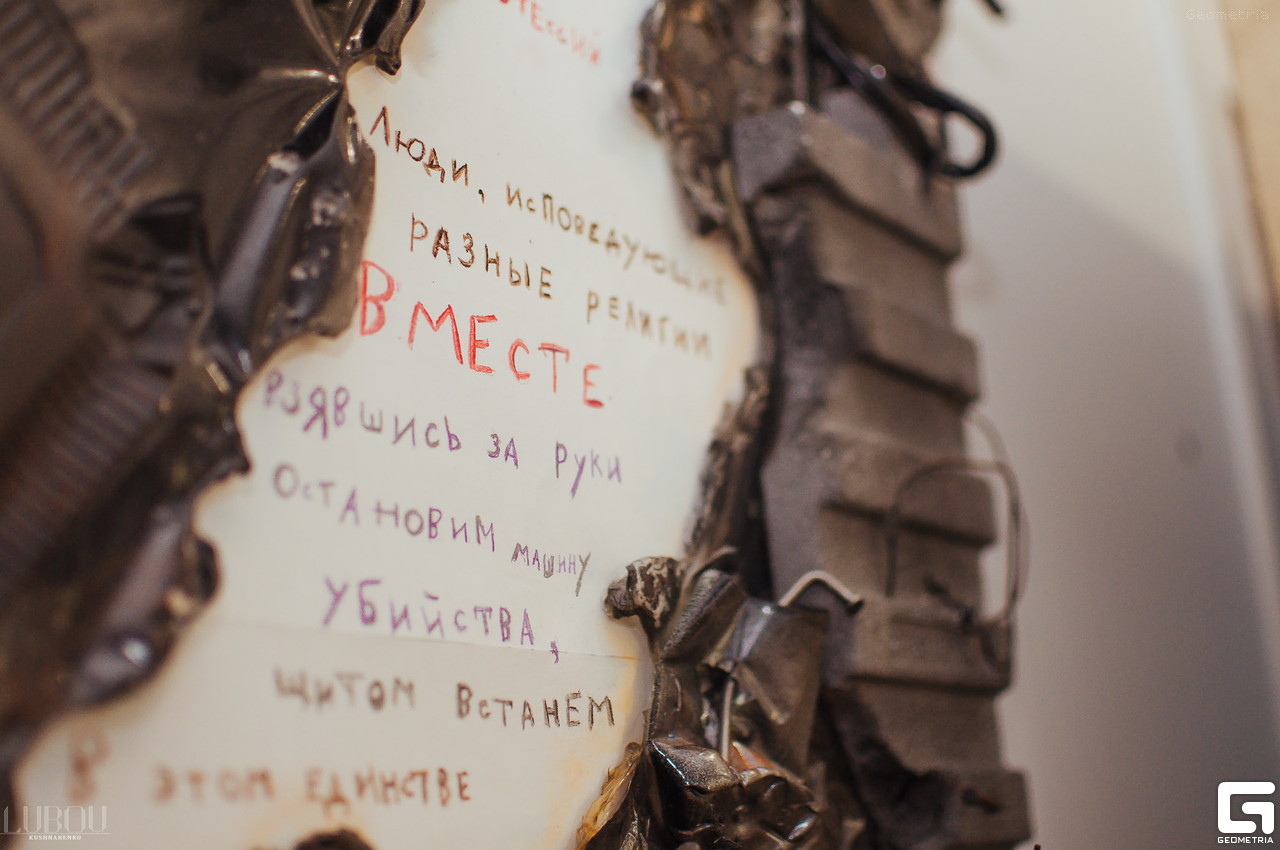 Geometria
Люди, исповедующие
разные религии
Вместе
взявшись за руки
Остановим машину
убийства,
щитом встанем
В этом единстве
LUBOU
KUSHNARENKO
GEOMETRIA